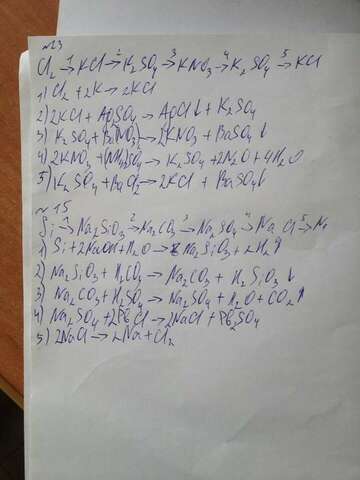 №13
Cl₂ →¹ KCl →² K₂SO₄ →³ KNO₃ →⁴ K₂SO₄ →⁵ KCl
1) Cl₂ + 2K → 2KCl
2) 2KCl + Ag₂SO₄ → AgCl↓ + K₂SO₄
3) K₂SO₄ + Ba(NO₃)₂ → 2KNO₃ + BaSO₄↓
4) 2KNO₃ + (NH₄)₂SO₄ → K₂SO₄ + 2N₂O + 4H₂O
5) K₂SO₄ + BaCl₂ → 2KCl + BaSO₄↓
№15
Si →¹ Na₂SiO₃ →² Na₂CO₃ →³ Na₂SO₄ →⁴ NaCl →⁵ Na
1) Si + 2NaOH + H₂O → Na₂SiO₃ + 2H₂↑
2) Na₂SiO₃ + H₂CO₃ → Na₂CO₃ + H₂SiO₃↓
3) Na₂CO₃ + H₂SO₄ → Na₂SO₄ + H₂O + CO₂↑
4) Na₂SO₄ + 2PbCl → 2NaCl + Pb₂SO₄
5) 2NaCl → 2Na + Cl₂